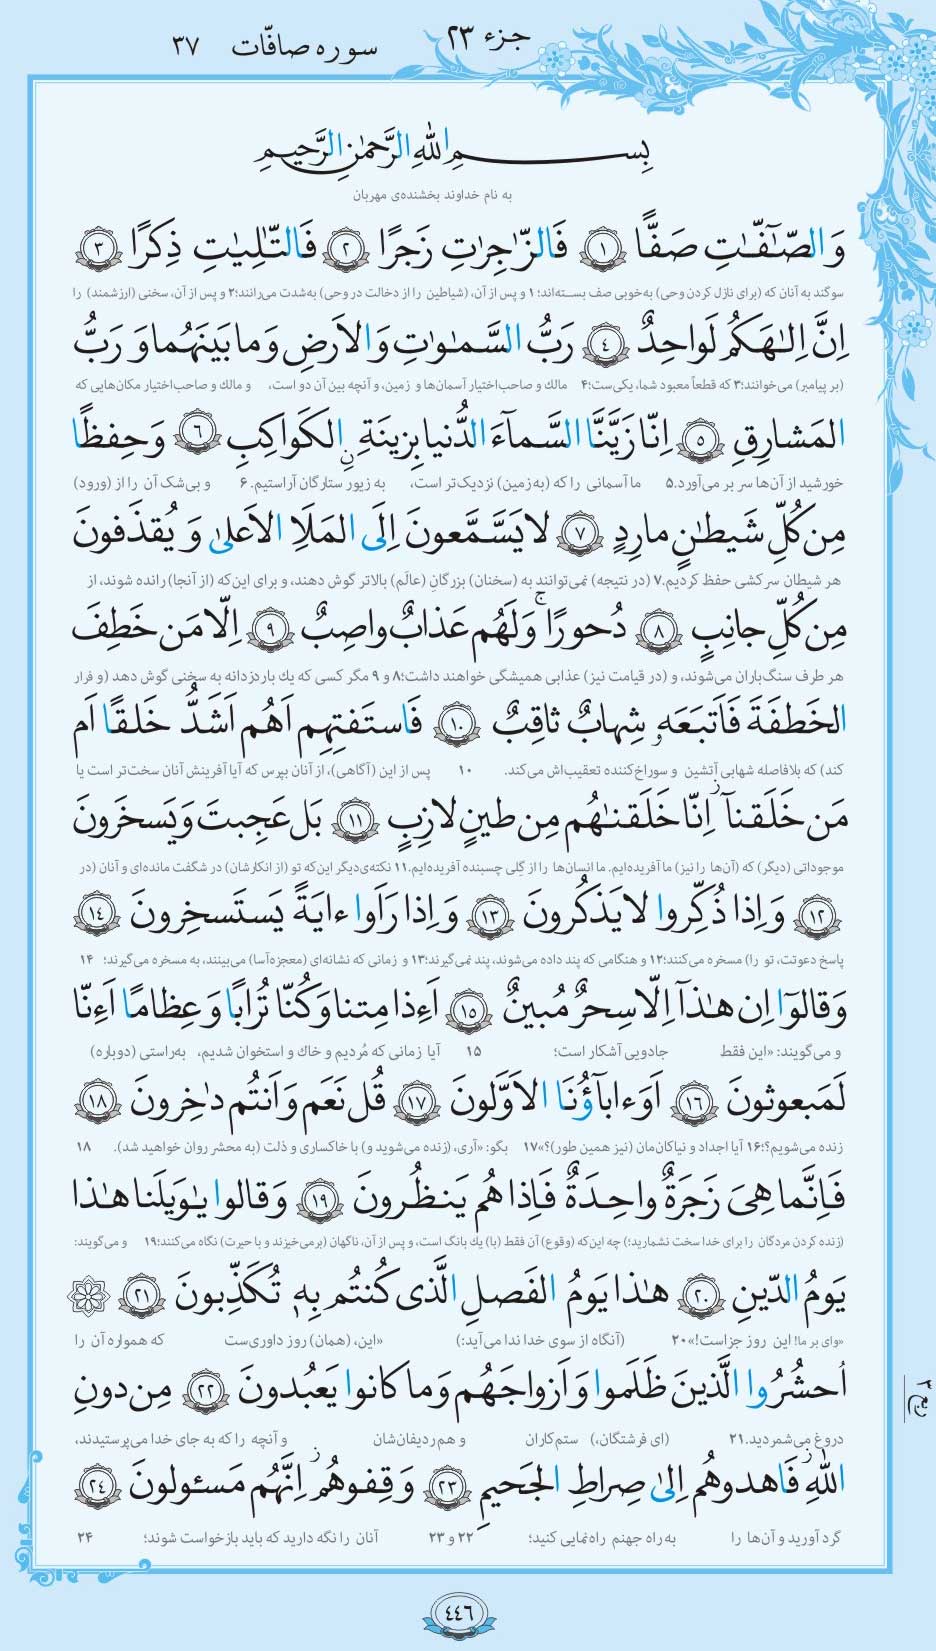 جزء ٢٣
سوره صافّات ٣٧
بِسمِ اللّٰهِ الرَّحمٰنِ الرَّحيمِ
به نام خداوند بخشنده‌ی مهربان
وَالصّٰٓفّٰتِ صَفًّا ١ فَالزّٰجِرٰتِ زَجرًا ٢ فَالتّٰلِيٰتِ ذِكرًا ٣
سوگند به آنان که (برای نازل کردن وحی) به‌خوبی صف بسته‌اند؛ ١ و پس از آن، (شیاطین را از دخالت در وحی) به‌شدت می‌رانند؛ ٢ و پس از آن، سخنی (ارزشمند) را
اِنَّ اِلٰهَكُم لَواحِدٌ ٤ رَبُّ السَّمٰوٰتِ وَالاَرضِ وَما بَينَهُما وَ رَبُّ
(بر پیامبر) می‌خوانند؛ ٣ که قطعاً معبود شما، یکی‌ست؛ ۴ مالك و صاحب‌اختیار آسمان‌ها و زمین، و آنچه بین آن دو است، و مالك و صاحب‌اختیار مکان‌هایی که
المَشارِقِ ٥ اِنّا زَيَّنَّا السَّمآءَ الدُّنيا بِزينَةٍ ࣙالكَواكِبِ ٦ وَ حِفظًا
خورشید از آن‌ها سر بر می‌آورد. ۵ ما آسمانی را که (به‌زمین) نزدیک‌تر است، به زیور ستارگان آراستیم. ۶ و بی‌شک آن را از (ورود)
مِن كُلِّ شَيطٰنٍ مارِدٍ ٧ لا يَسَّمَّعونَ اِلَى المَلَاِ الاَعلىٰ وَ يُقذَفونَ
هر شیطان سرکشی حفظ کردیم. ٧ (در نتیجه) نمی‌توانند به (سخنان) بزرگانِ (عالَم) بالاتر گوش دهند، و برای این‌که (از آنجا) رانده شوند، از
مِن كُلِّ جانِبٍ ٨ دُحورًاۚ وَلَهُم عَذابٌ واصِبٌ ٩ اِلّا مَن خَطِفَ
هر طرف سنگ‌باران می‌شوند، و (در قیامت نیز) عذابی همیشگی خواهند داشت؛ ٨ و ٩ مگر کسی که یك بار دزدانه به سخنی گوش دهد (و فرار
الخَطفَةَ فَاَتبَعَهٗ شِهابٌ ثاقِبٌ ١٠ فَاستَفتِهِم اَهُم اَشَدُّ خَلقًا اَم
کند) که بلافاصله شهابی آتشین و سوراخ‌کننده تعقیب‌اش می‌کند. ١٠ پس از این (آگاهی)، از آنان بپرس که آیا آفرینش آنان سخت‌تر است یا
مَن خَلَقنآۚ اِنّا خَلَقنٰهُم مِن طينٍ لازِبٍ ١١ بَل عَجِبتَ وَ يَسخَرونَ
موجوداتی (دیگر) که (آن‌ها را نیز) ما آفریده‌ایم. ما انسان‌ها را از گِلی چسبنده آفریده‌ایم. ١١ نکته‌ی‌دیگر این‌که تو (از انکارشان) در شگفت مانده‌ای و آنان (در
١٢ وَ اِذا ذُكِّروا لا يَذكُرونَ ١٣ وَ اِذا رَاَوا ءايَةً يَستَسخِرونَ ١٤
پاسخ دعوتت، تو را) مسخره می‌کنند؛ ١٢ و هنگامی که پند داده می‌شوند، پند نمی‌گیرند؛ ١٣ و زمانی که نشانه‌ای (معجزه‌آسا) می‌بینند، به مسخره می‌گیرند؛ ١۴
وَقالوٓا اِن هٰذآ اِلّا سِحرٌ مُبينٌ ١٥ اَءِذا مِتنا وَ كُنّا تُرابًا وَ عِظامًا اَءِنّا
و می‌گویند: «این فقط جادویی آشکار است؛ ١۵ آیا زمانی که مُردیم و خاك و استخوان شدیم، به‌راستی (دوباره)
لَمَبعوثونَ ١٦ اَوَ ءابآؤُنَا الاَوَّلونَ ١٧ قُل نَعَم وَ اَنتُم دٰخِرونَ ١٨
زنده می‌شویم؟! ١۶ آیا اجداد و نیاکان‌مان (نیز همین طور)؟» ١٧ بگو: «آری، (زنده می‌شوید و) با خاکساری و ذلت (به محشر روان خواهید شد). ١٨
فَاِنَّما هِىَ زَجرَةٌ واحِدَةٌ فَاِذا هُم يَنظُرونَ ١٩ وَ قالوا يٰوَيلَنا هٰذا
(زنده کردن مردگان را برای خدا سخت نشمارید؛) چه این‌که (وقوع) آن فقط (با) یك بانگ است، و پس از آن، ناگهان (برمی‌خیزند و با حیرت) نگاه می‌کنند؛ ١٩ و می‌گویند:
يَومُ الدّينِ ٢٠ هٰذا يَومُ الفَصلِ الَّذى كُنتُم بِهٖ تُكَذِّبونَ ٢١
«وای بر ما! این روز جزاست!» ٢٠ (آنگاه از سوی خدا ندا می‌آید:) «این، (همان) روز داوری‌ست که همواره آن را
اُحشُرُوا الَّذينَ ظَلَموا وَ اَزواجَهُم وَما كانوا يَعبُدونَ ٢٢ مِن دونِ
دروغ می‌شمردید. ٢١ (ای فرشتگان،) ستم‌کاران و هم‌ردیفان‌شان و آنچه را که به جای خدا می‌پرستیدند،
اللّٰهِ فَاهدوهُم اِلىٰ صِراطِ الجَحيمِ ٢٣ وَقِفوهُمۚ اِنَّهُم مَسئولونَ ٢٤
گرد آورید و آن‌ها را به راه جهنم راه‌نمایی کنید؛ ٢٢ و ٢٣ آنان را نگه دارید که باید بازخواست شوند؛ ٢۴
ربع ٢
٤٤٦